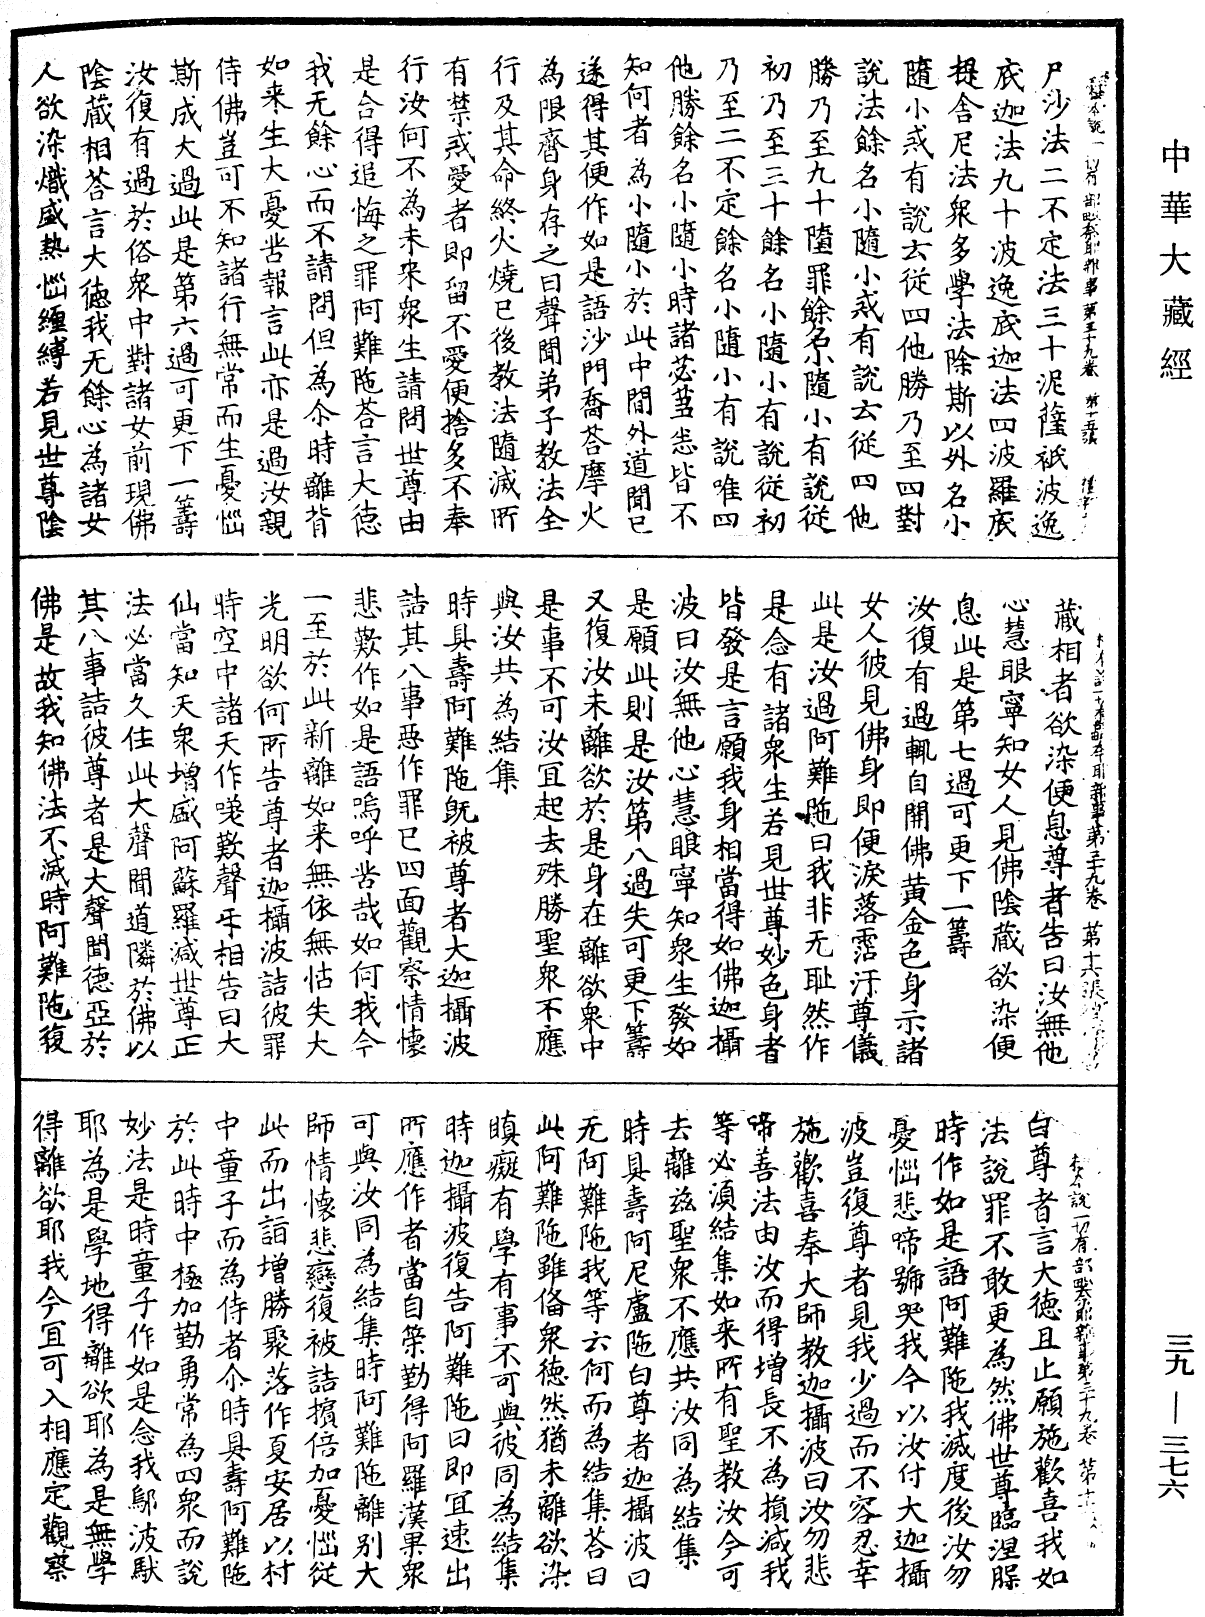 中華大藏經
三九—三七六
尸沙法二不定法三十泥薩祇波逸
底迦法九十波逸底迦法四波羅底
提舍尼法衆多學法除斯以外名小
隨小或有說云從四他勝乃至四對
說法餘名小隨小或有說云從四他
勝乃至九十墮罪餘名小隨小有說從
初乃至三十餘名小隨小有說從初
乃至二不定餘名小隨小有說唯四
他勝餘名小隨小時諸苾芻悉皆不
知何者為小隨小於此中間外道聞已
遂得其便作如是語沙門喬荅摩火
為限齊身存之日聲聞弟子教法全
行及其命終火燒已後教法隨滅所
有禁戒愛者即留不愛便捨多不奉
行汝何不為未來衆生請問世尊由
是合得追悔之罪阿難陁荅言大德
我无餘心而不請問但為尒時離背
如来生大憂苦報言此亦是過汝親
侍佛豈可不知諸行無常而生憂惱
斯成大過此是第六過可更下一籌
汝復有過於俗衆中對諸女前現佛
陰藏相荅言大德我无餘心為諸女
人欲染熾盛熱惱纏縛若見世尊陰
藏相者欲染便息尊者告曰汝無他
心慧眼寧知女人見佛陰藏欲染便
息此是第七過可更下一籌
汝復有過輒自開佛黃金色身示諸
女人彼見佛身即便淚落霑汙尊儀
此是汝過阿難陁曰我非无耻然作
是念有諸衆生若見世尊妙色身者
皆發是言願我身相當得如佛迦攝
波曰汝無他心慧眼寧知衆生發如
是願此則是汝第八過失可更下籌
又復汝未離欲於是身在離欲衆中
是事不可汝冝起去殊勝聖衆不應
與汝共為結集
時具壽阿難陁旣被尊者大迦攝波
詰其八事惡作罪已四面觀察情懷
悲歎作如是語嗚呼苦哉如何我今
一至於此新離如来無依無怙失大
光明欲何所告尊者迦攝波詰彼罪
時空中諸天作嗟歎聲互相告曰大
仙當知天衆增盛阿蘇羅減世尊正
法必當久住此大聲聞道隣於佛以
其八事詰彼尊者是大聲聞德亞於
佛是故我知佛法不滅時阿難陁復
白尊者言大德且止願施歡喜我如
法說罪不敢更為然佛世尊臨涅槃
時作如是語阿難陁我滅度後汝勿
憂惱悲啼號哭我今以汝付大迦攝
波豈復尊者見我少過而不容忍幸
施歡喜奉大師教迦攝波曰汝勿悲
啼善法由汝而得增長不為損減我
等必湏結集如来所有聖教汝今可
去離兹聖衆不應共汝同為結集
時具壽阿尼盧陁白尊者迦攝波曰
无阿難陁我等云何而為結集荅曰
此阿難陁雖俻衆德然猶未離欲染
瞋癡有學有事不可與彼同為結集
時迦攝波復告阿難陁曰即冝速出
所應作者當自策勤得阿羅漢果衆
可與汝同為結集時阿難陁離别大
師情懷悲戀復被詰擯倍加憂惱從
此而出詣增勝聚落作夏安居以村
中童子而為侍者尒時具壽阿難陁
於此時中極加勤勇常為四衆而說
妙法是時童子作如是念我鄔波馱
耶為是學地得離欲耶為是無學
得離欲耶我今冝可入相應定觀察